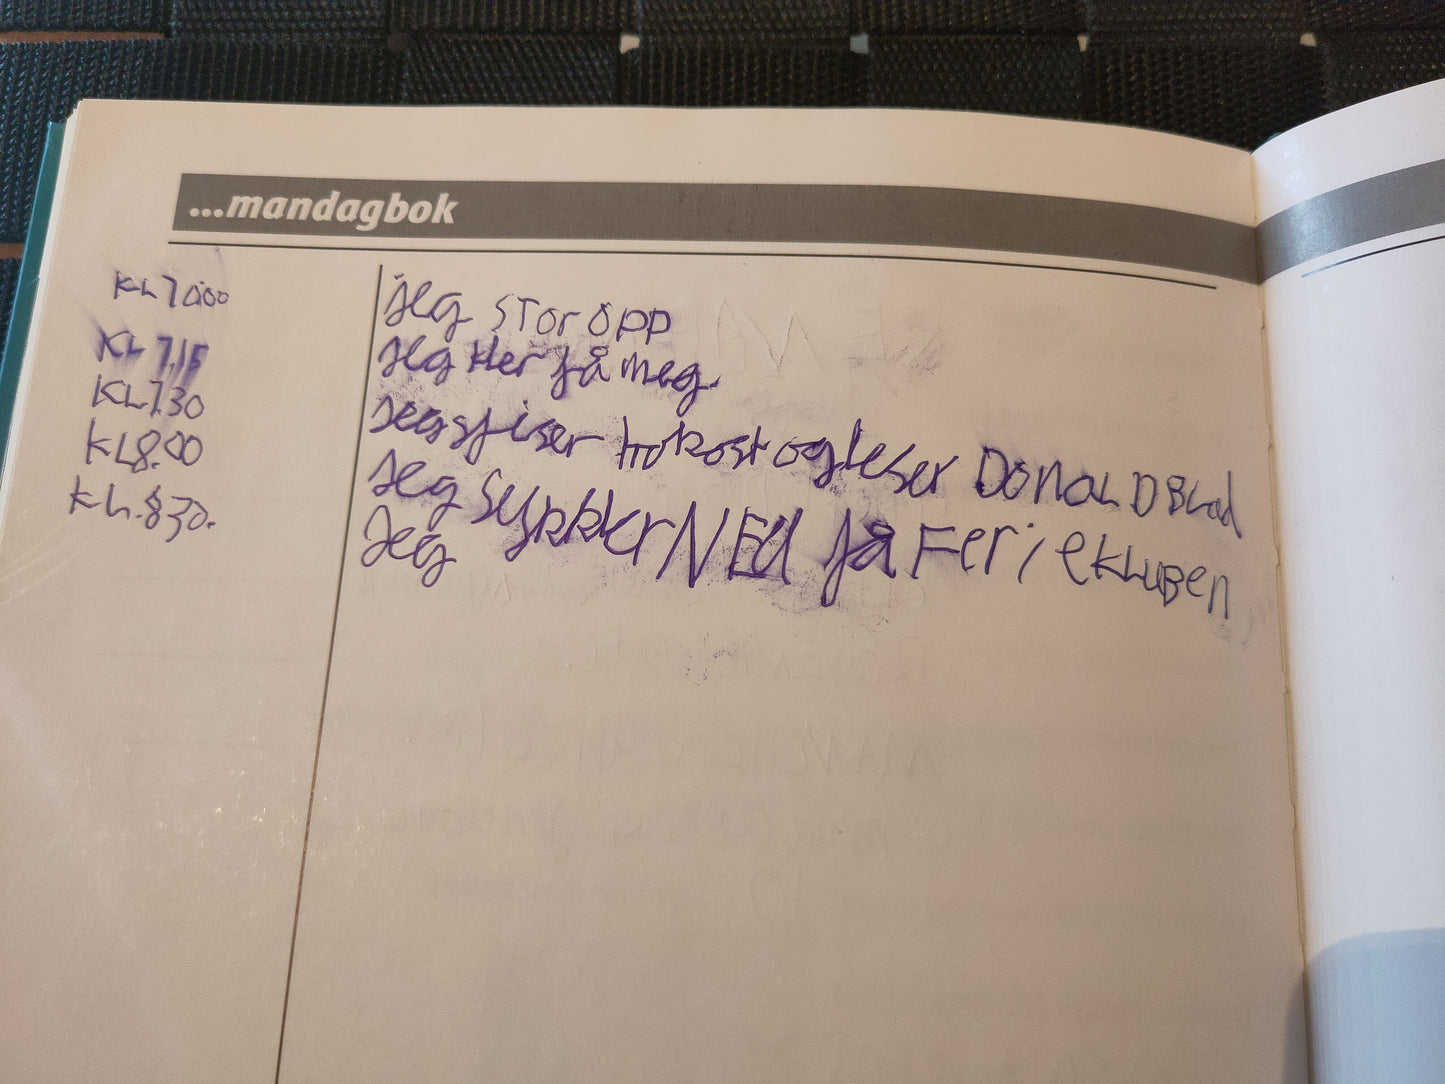 ...mandagbok
KL 7.00 jeg STor opp
KL 7.15 jeg kler på meg.
KL 7.30 jeg spiser frokost og leser DonalD BLad
KL 8.00 jeg sykkler NED på FerieKLuBen
KL. 8 30. Jeg